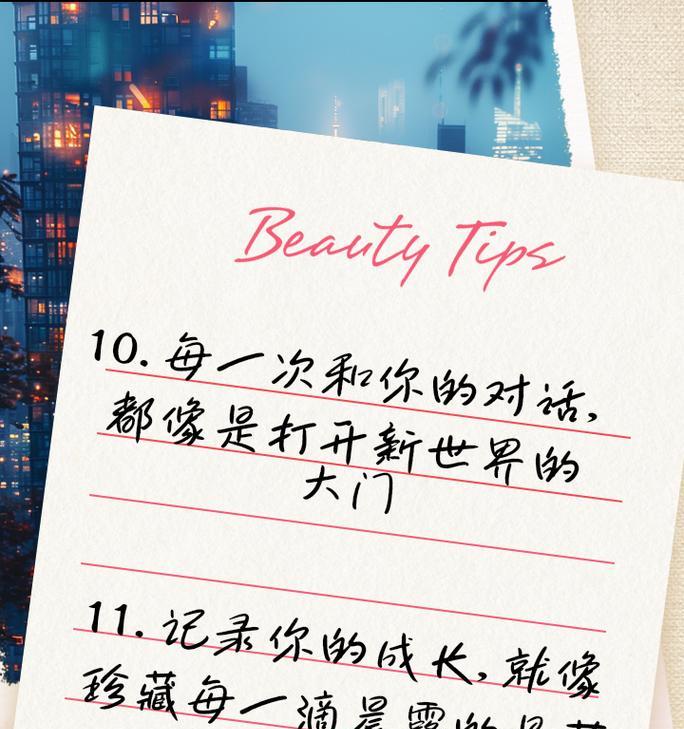 Beauty Tips
10. 每一次和你的对话,
都像是打开新世界的
大门
11. 记录你的成长, 就像
珍藏每一滴晨露的